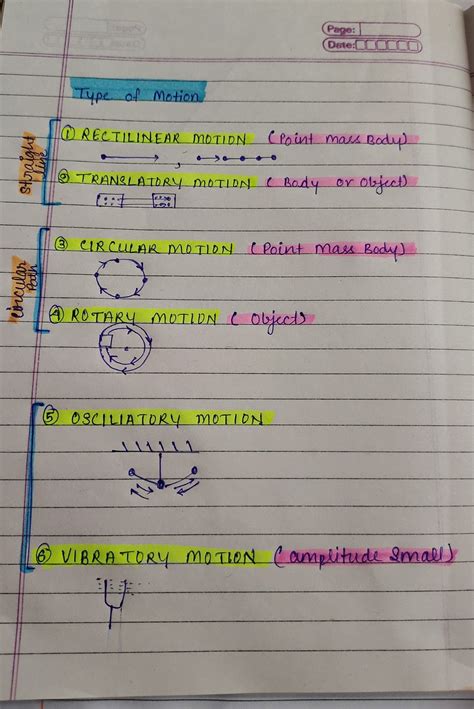 Page:
Date:
Type of Motion
Straight line
① RECTILINEAR MOTION (Point Mass Body)
② TRANSLATORY MOTION ( Body or Object)
Circular Path
③ CIRCULAR MOTION (Point Mass Body)
④ ROTARY MOTION ( Object)
⑤ OSCILIATORY MOTION
⑥ VIBRATORY MOTION (amplitude small)